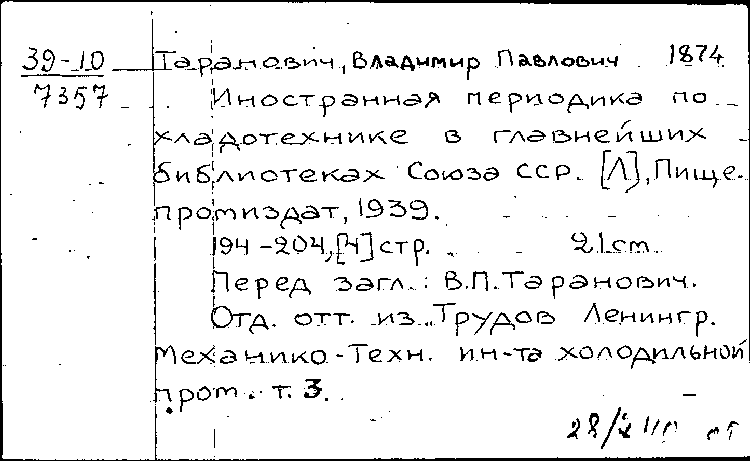 39-10 Таранович, Владимир Павлович 1874
7357 Иностранная периодика по
хладотехнике в главнейших
библиотеках Союза ССР. [Л], Пище-
промиздат, 1939.
194-204,[4] стр. 21cm
Перед загл.: В.П.Таранович.
Отд. отт. из Трудов Ленингр.
Механико-Техн. ин-та холодильной
пром. т. 3.